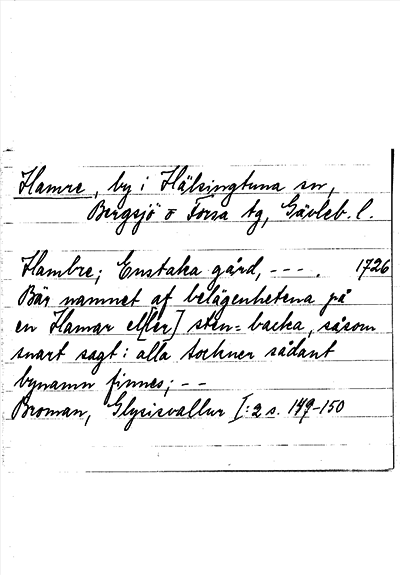 Hamre, by i Hälsingtuna sn,
Bergsjö o Forsa tg, Gävleb. l.
Hambre; Enstaka gård, --- . 1726
Bär namnet af belägenhetena på
en Hamar el[ler] sten=backa, såsom
snart sagt: alla sockner sådant
bynamn finnes; --
Broman, Glysisvallur I:2 s. 149-150